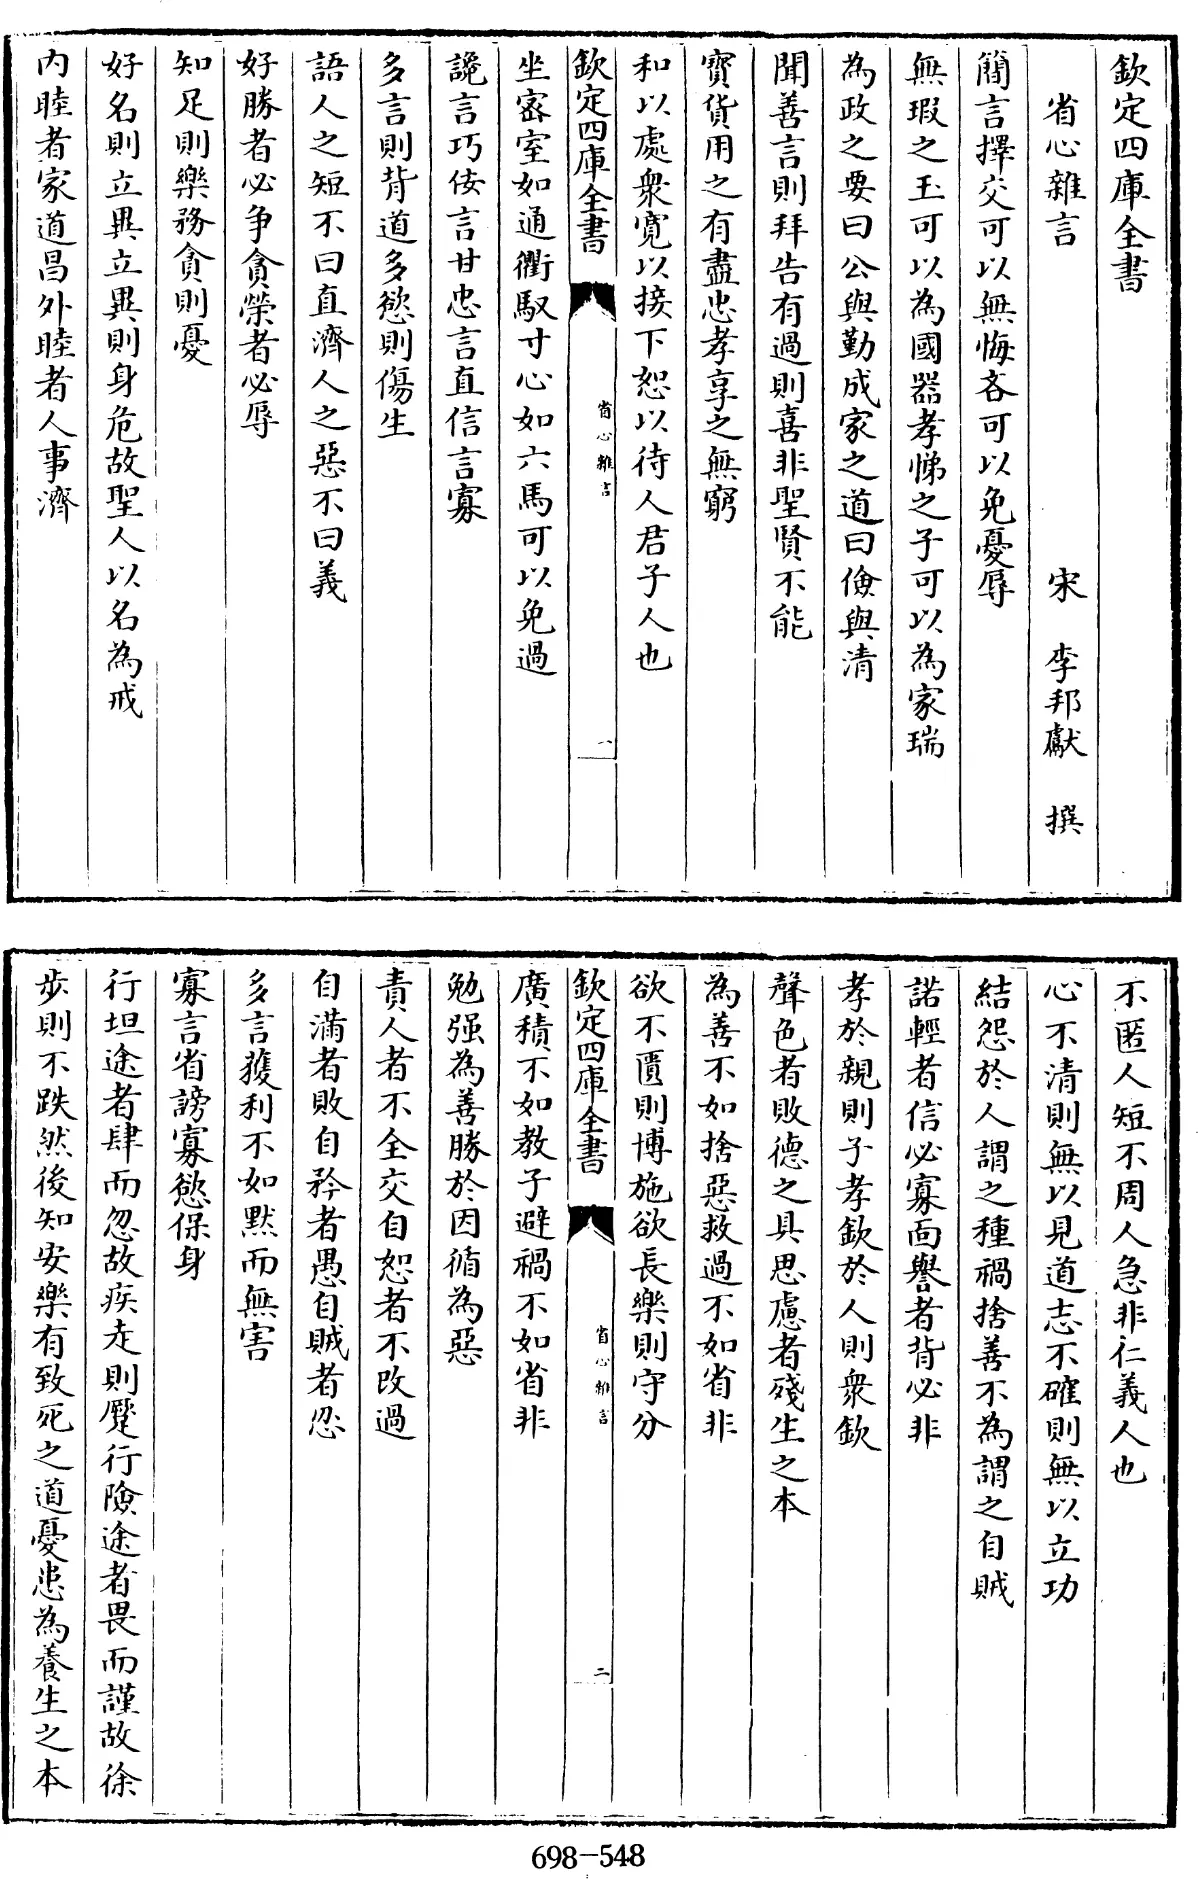 欽定四庫全書
省心雜言
宋 李邦獻 撰
簡言擇交可以無悔吝可以免憂辱
無瑕之玉可以為國器孝悌之子可以為家瑞
為政之要曰公與勤成家之道曰儉與清
聞善言則拜告有過則喜非聖賢不能
寶貨用之有盡忠孝享之無窮
和以處衆寛以接下恕以待人君子人也
欽定四庫全書
省心雜言
一
坐密室如通衢馭寸心如六馬可以免過
讒言巧佞言甘忠言直信言寡
多言則背道多慾則傷生
語人之短不曰直濟人之惡不曰義
好勝者必争貪榮者必辱
知足則樂務貪則憂
好名則立異立異則身危故聖人以名為戒
内睦者家道昌外睦者人事濟
不匿人短不周人急非仁義人也
心不清則無以見道志不確則無以立功
結怨於人謂之種禍捨善不為謂之自賊
諾輕者信必寡面譽者背必非
孝於親則子孝欽於人則衆欽
聲色者敗德之具思慮者殘生之本
為善不如捨惡救過不如省非
欲不匱則博施欲長樂則守分
欽定四庫全書
省心雜言
二
廣積不如教子避禍不如省非
勉强為善勝於因循為惡
責人者不全交自恕者不改過
自滿者敗自矜者愚自賊者忍
多言獲利不如默而無害
寡言省謗寡慾保身
行坦途者肆而忽故疾走則蹷行險途者畏而謹故徐
步則不跌然後知安樂有致死之道憂患為養生之本
698-548